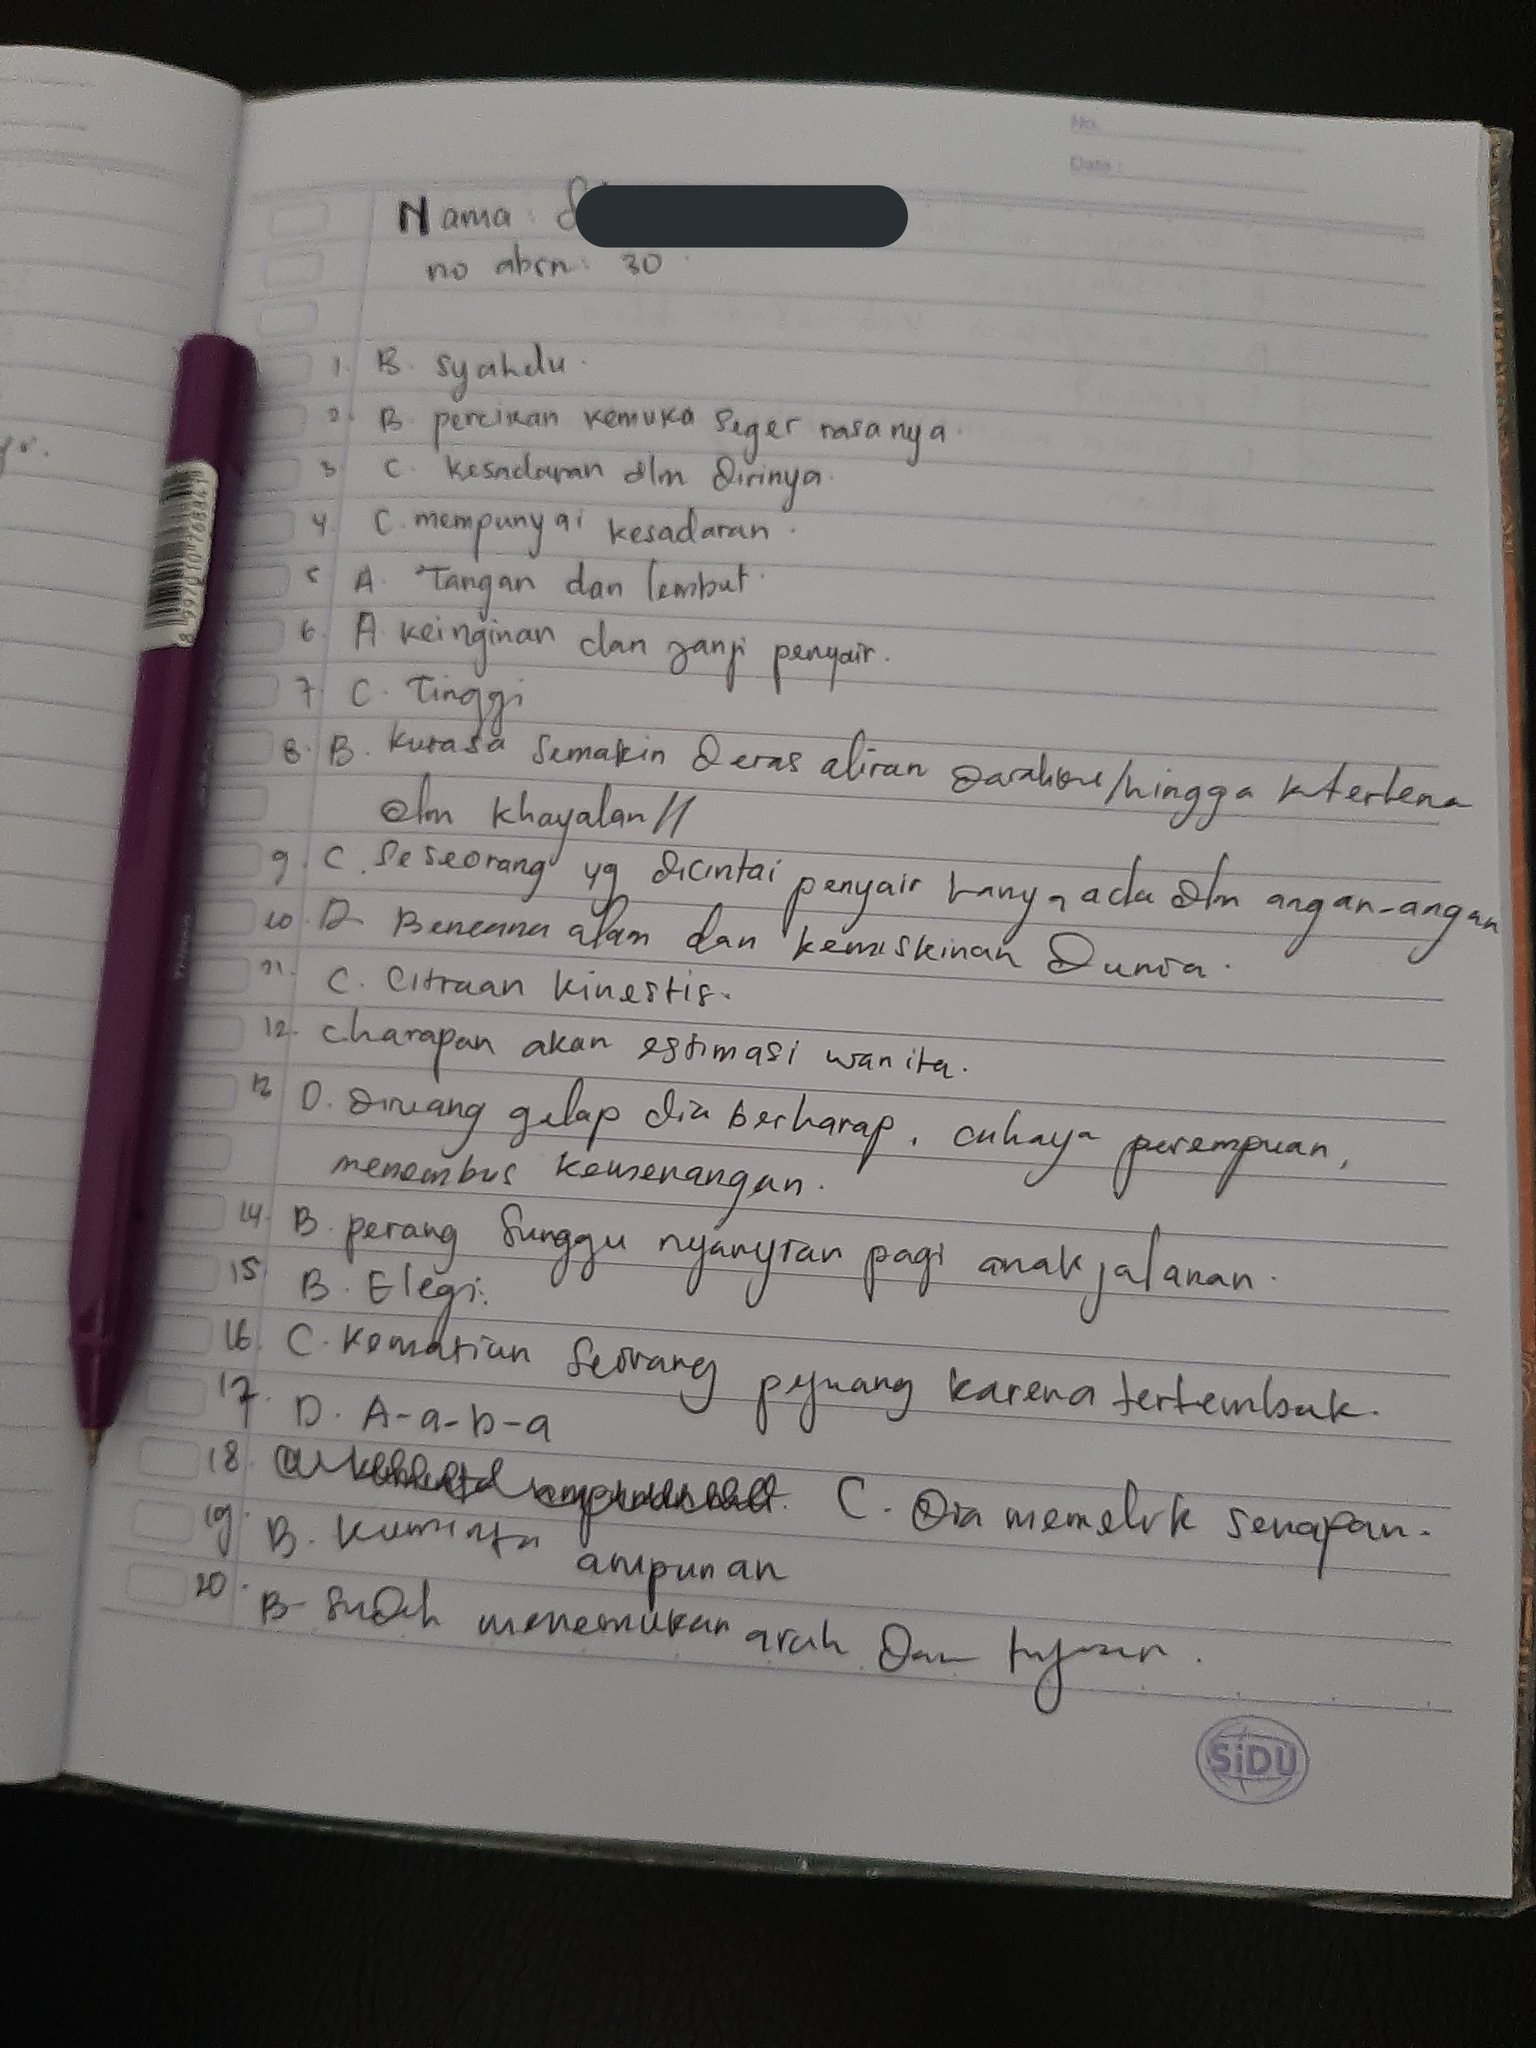 No.
Date :
Nama :
no absn : 30
1. B. Syahdu.
2. B. percikan kemuka seger rasanya.
3. C. kesadaran dlm dirinya.
4. C. mempunyai kesadaran.
5. A. Tangan dan lembut.
6. A. keinginan dan janji penyair.
7. C. Tinggi
8. B. kurasa semakin deras aliran /hingga terlena
dlm khayalan//
9. C. Seseorang yg dicintai penyair hanya ada dlm angan-angan
10. D Bencana alam dan kemiskinan dunia.
11. C. Citraan kinestis.
12. charapan akan estimasi wanita.
13 D. diruang gelap dia berharap, cahaya perempuan,
menembus kemenangan.
14. B. perang sunggu nyanyian pagi anak jalanan.
15. B. Elegi.
16. C. Kematian seorang pejuang karena tertembak.
17. D. A-a-b-a
18. C. Dia memeluk senapan.
19. B. Kuminta ampunan
20. B- Sudah menemukan arah dan tujuan.
SiDU